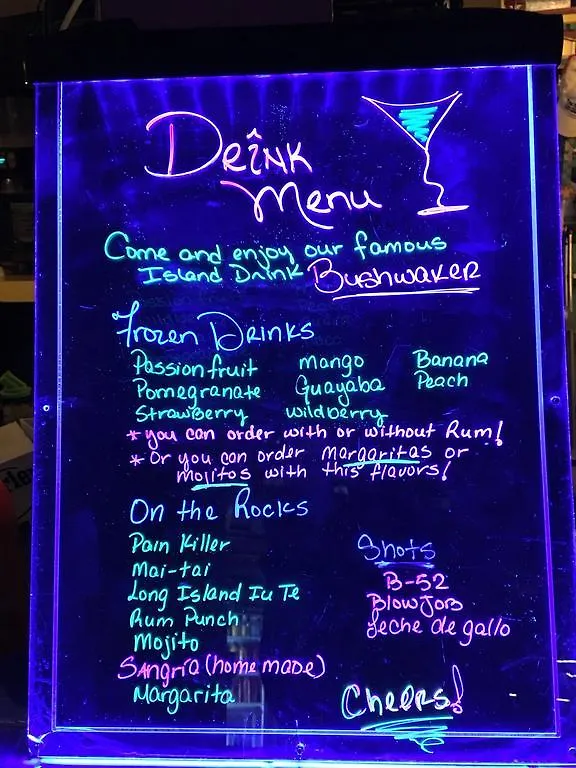 Drink
Menu
Come and enjoy our famous
Island Drink Bushwaker
Frozen Drinks
Passion fruit mango Banana
Pomegranate Guayaba Peach
Strawberry wildberry
* you can order with or without Rum!
* Or you can order margaritas or
mojitos with this flavors!
On the Rocks
Pain Killer
Mai-tai
Long Island Iu Te
Rum Punch
Mojito
Sangria (home made)
Margarita
Shots
B-52
Blow Job
Leche de gallo
Cheers!